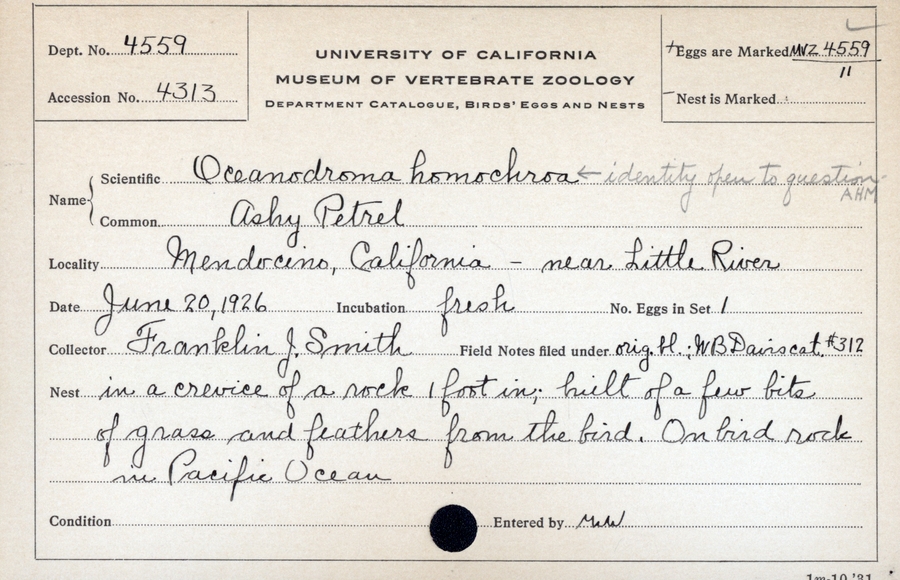 Dept. No. 4559
UNIVERSITY OF CALIFORNIA
MUSEUM OF VERTEBRATE ZOOLOGY
DEPARTMENT CATALOGUE, BIRDS' EGGS AND NESTS
+Eggs are Marked MVZ 4559
11
Accession No. 4313
Nest is Marked
Name
Scientific Oceanodroma homochroa ← identity open to question
AHM
Common Ashy Petrel
Locality Mendocino, California - near Little River
Date June 20, 1926 Incubation fresh No. Eggs in Set 1
Collector Franklin J. Smith Field Notes filed under orig. bl.; WB Davis cat. #312
Nest in a crevice of a rock 1 foot in; built of a few bits
of grass and feathers from the bird. On bird rock
in Pacific Ocean
Condition
Entered by
1m-10,'31